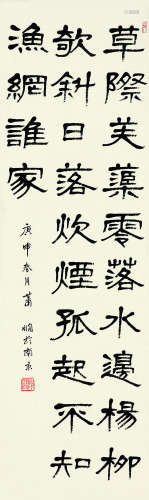 草際芙蕖零落水邊楊柳
欹斜日落炊煙孤起不知
漁網誰家
庚申春月蕭嫻於南京